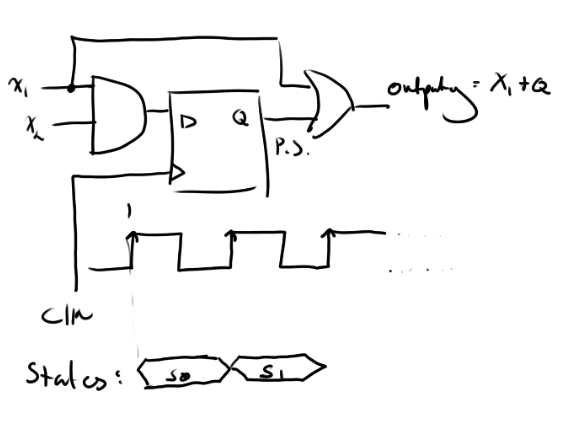 X₁
X₂
D Q
P.S.
output y = X₁ + Q
1
Clk
States: S0 S1